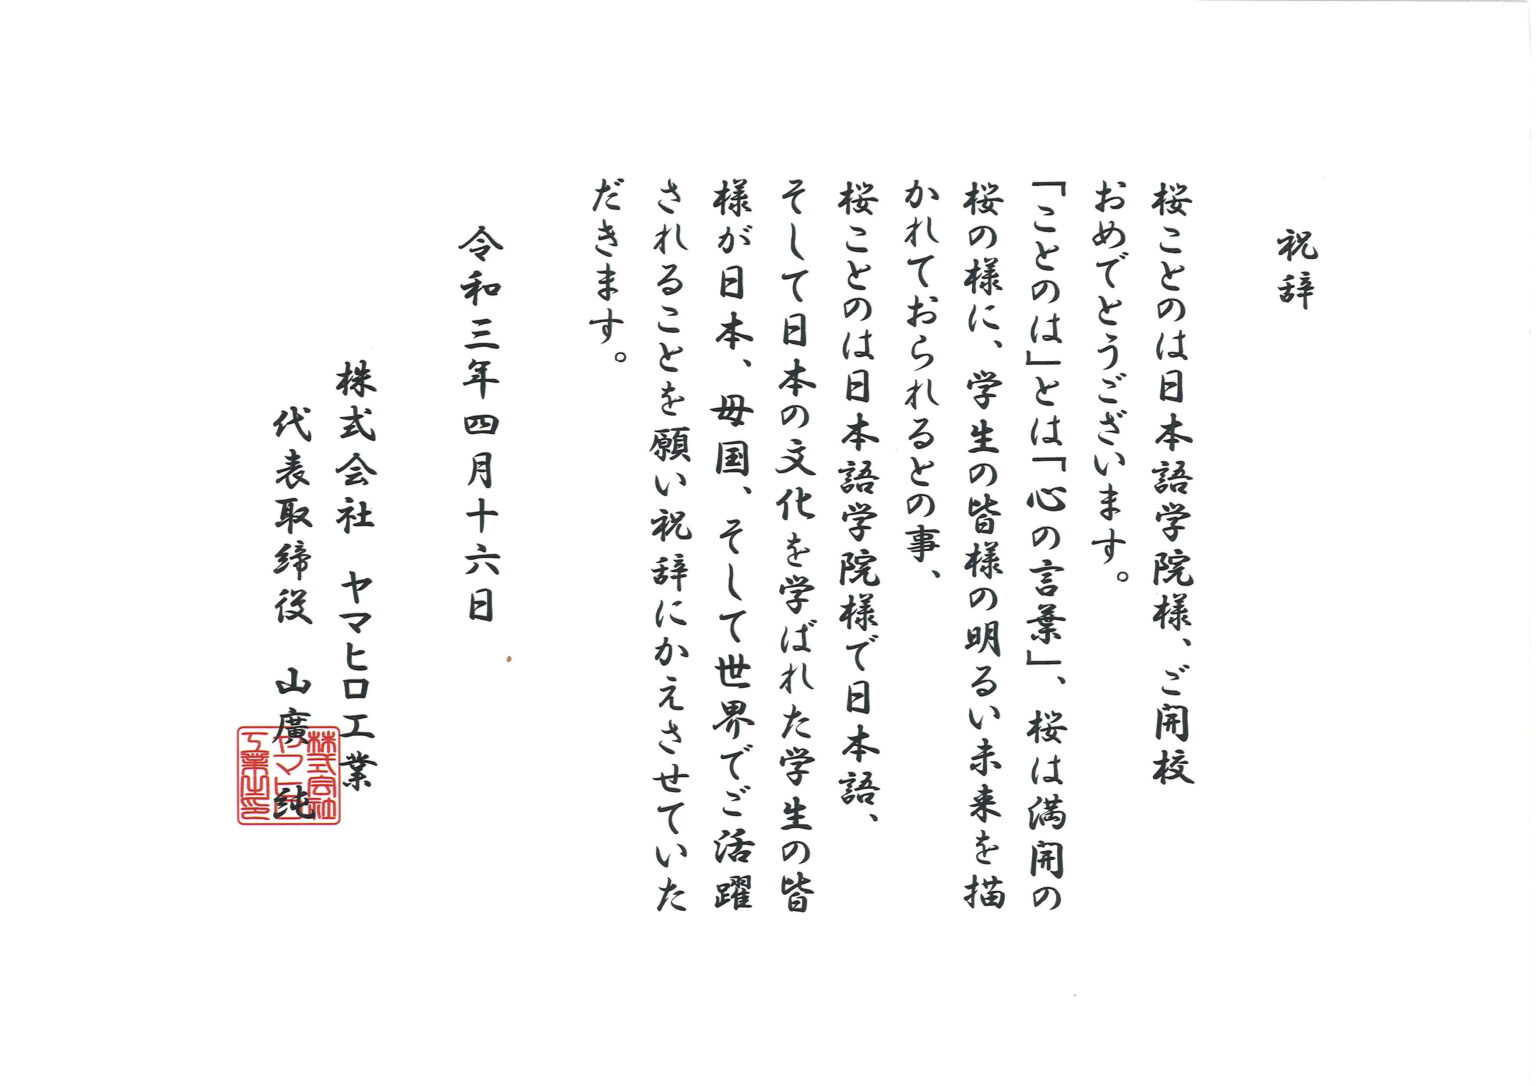 祝辞
桜ことのは日本語学院様、ご開校
おめでとうございます。
「ことのは」とは「心の言葉」、桜は満開の
桜の様に、学生の皆様の明るい未来を描
かれておられるとの事、
桜ことのは日本語学院様で日本語、
そして日本の文化を学ばれた学生の皆
様が日本、母国、そして世界でご活躍
されることを願い祝辞にかえさせていた
だきます。
令和三年四月十六日
株式会社 ヤマヒロ工業
代表取締役 山廣 純
株式会社
ヤマヒロ
工業之印